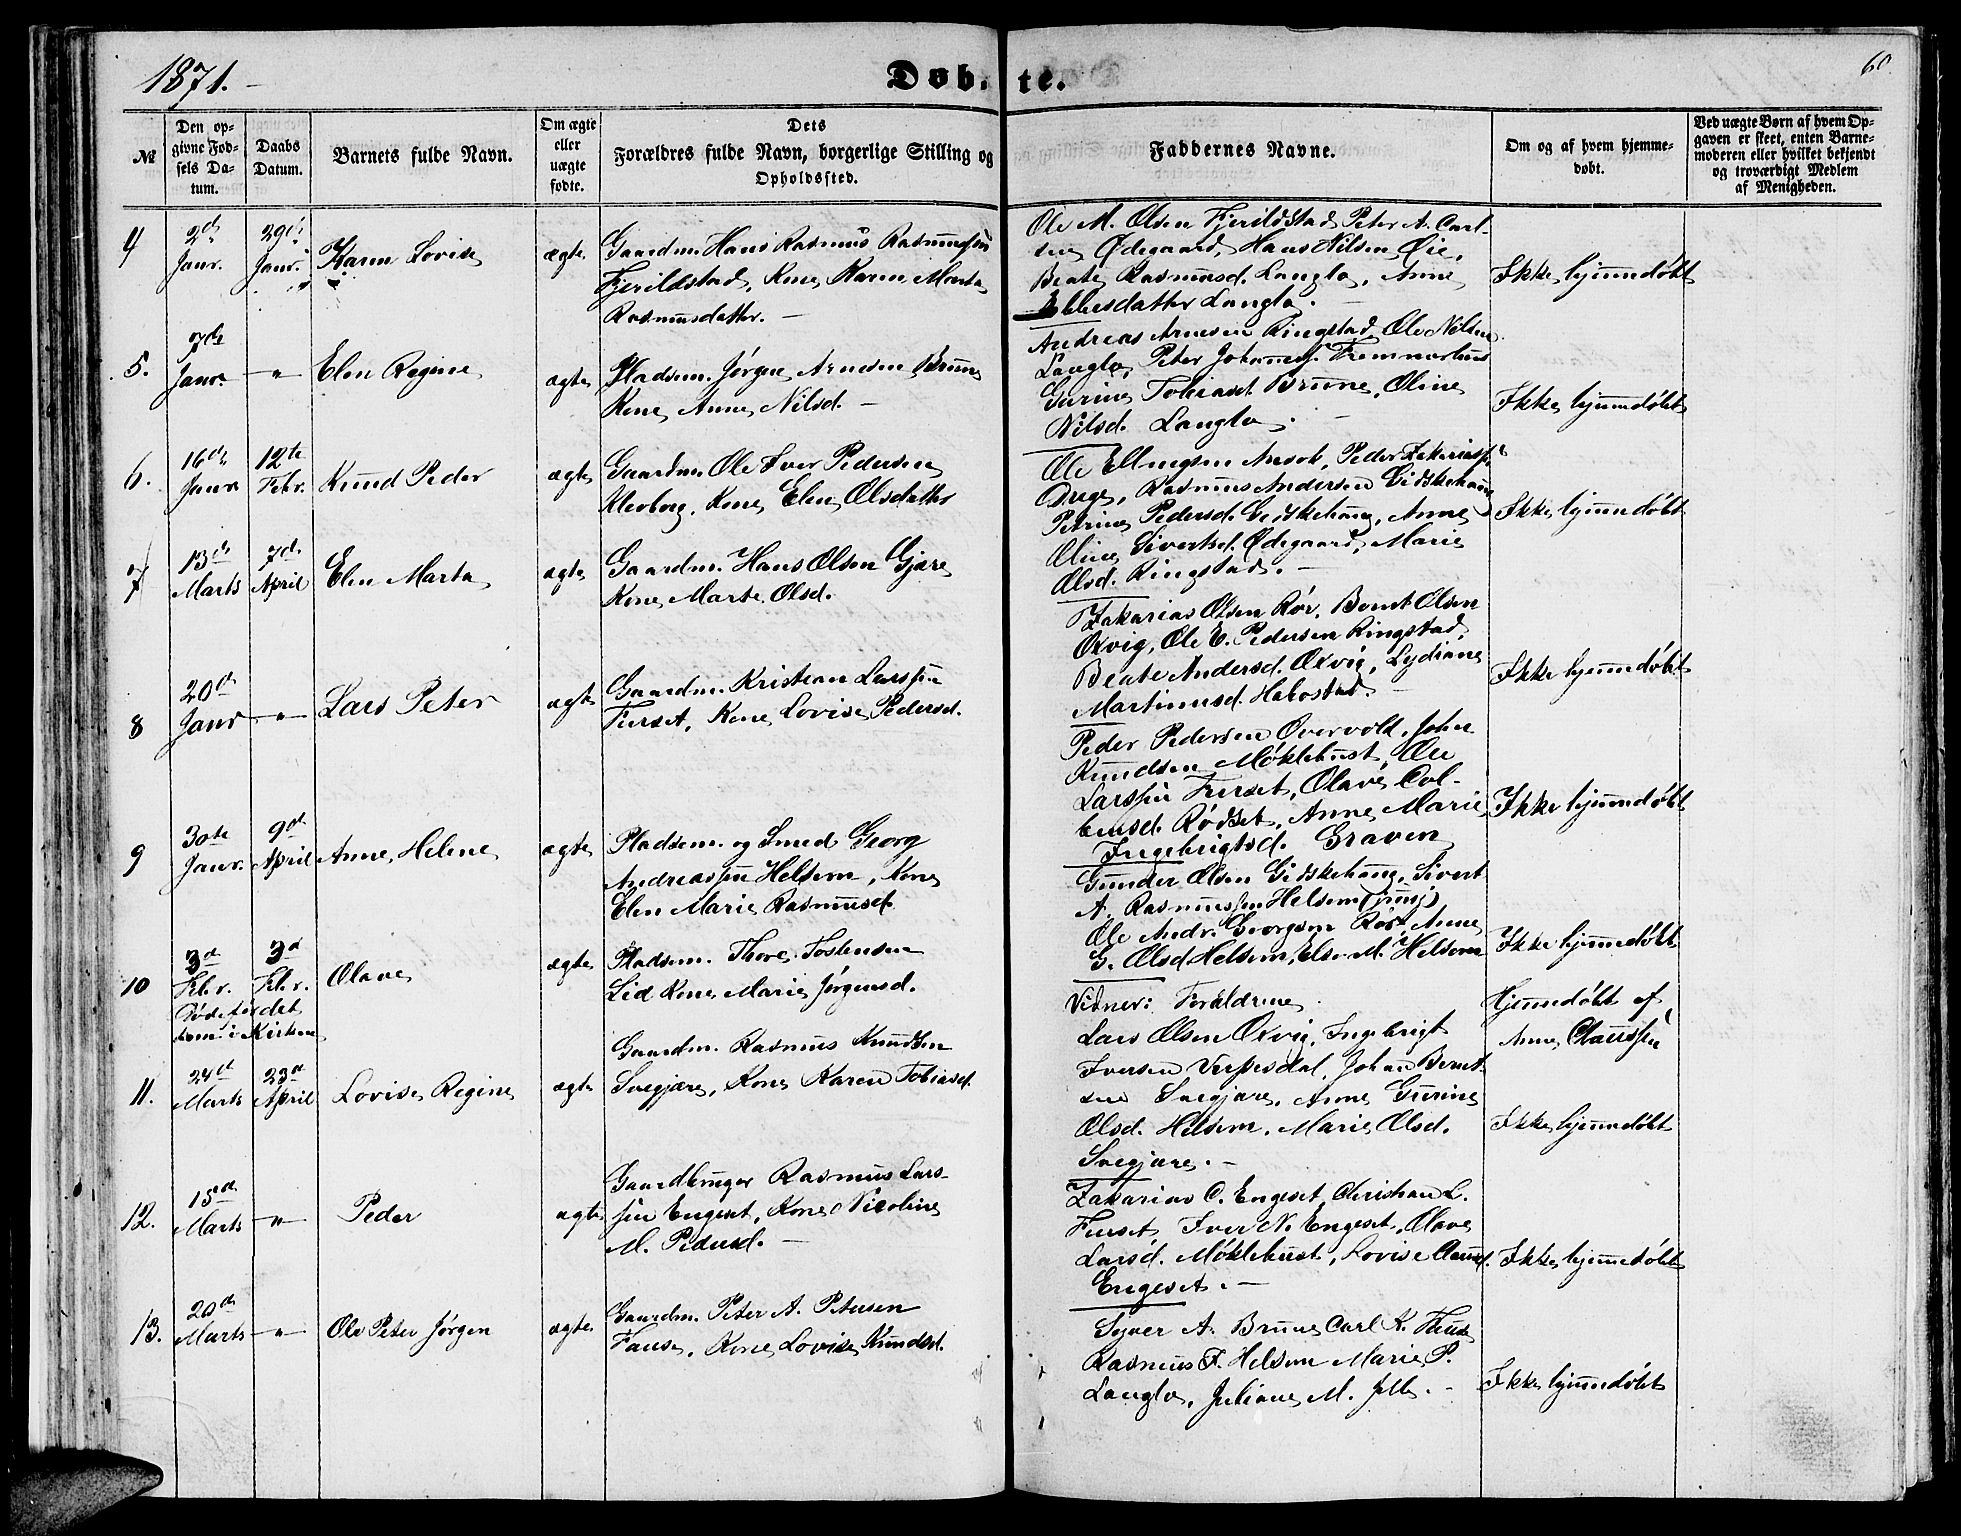 1871.
Døbte.
60.
№
Den op-
givne Fød-
sels Da-
tum.
Daabs
Datum.
Barnets fulde Navn.
Om ægte
eller
uægte
fødte.
Dets
Forældres fulde Navn, borgerlige Stilling og
Opholdssted.
Faddernes Navne.
Om og af hvem hjemme-
døbt.
Ved uægte Børn af hvem Op-
gaven er skeet, enten Barne-
moderen eller hvilket bekjendt
og troværdigt Medlem
af Menigheden.
4
2den
Janr.
29de
Janr.
Karen Lovise
ægte
Gaardm. Hans Rasmus Rasmussen
Fjerildstad, Kone Karen Marta
Rasmusdatter. —
Ole M. Olsen Fjerildstad Peter A. Carl-
sen Ødegaard, Hans Nilsen Øie,
Beate Rasmusd. Langlo, Anne
Ebbesdatter Langlo. —
Ikke hjemmedøbt
5.
7de
Janr.
—"—
Elen Regine
ægte
Pladsem. Jørgen Arnesen Brune
Kone Anne Nilsd. —
Andreas Arnesen Ringstad, Ole Nilsen
Langlo, Peter Johannes. Fremmerhus
Gurine Tobiasd. Brune, Oline
Nilsd. Langlo.
Ikke hjemmedøbt
6.
16de
Janr
12te
Febr.
Knud Peder
ægte
Gaardm. Ole Iver Pedersen
Kleiborg, Kone Elen Olsdatter
Ole Ellingsen Ansok, Peder Zakarias.
Drege, Rasmus Andersen Gidskehaug
Petrine Pedersd. Gidskehaug, Anne
Oline Sivertsd. Ødegaard, Marie
Olsd. Ringstad. —
Ikke hjemmedøbt
7
13de
Marts
7de
April
Elen Marta
ægte
Gaardm. Hans Olsen Gjære
Kone Marte Olsd.
Zakarias Olsen Rør, Bernt Olsen
Oxvig, Ole E. Pedersen Ringstad,
Beate Andersd. Oxvig, Lydiane
Martinusd. Habostad. —
Ikke hjemmedøbt
8
20de
Janr
—"—
Lars Peter
ægte
Gaardm. Kristian Larssen
Furset, Kone Lovise Pedersd.
Peder Pedersen Overvold, John
Knudsen Møklebust, Ole
Larssen Furset, Olave Col-
bensd. Rødset, Anne Marie
Ingebrigtsd. Graven
Ikke hjemmedøbt
9
30te
Janr.
9de
April
Anne Helene
ægte
Pladsem. og Smed Georg
Andreassen Helsem, Kone
Elen Marie Rasmusd.
Gunder Olsen Gidskehaug, Sivert
A. Rasmussen Helsem (jung)
Ole Andr. Georgsen Rør Anne
G. Olsd Helsem, Else M. Helsem
Ikke hjemmedøbt
10
3de
Febr.
3de
Febr.
Døde før det
kom i Kirken
Olave
ægte
Pladsem. Thore Tostensen
Lid Kone Marie Jørgensd.
Vidner: Forældrene
Hjemmedøbt af
Anne Claussen
11.
24de
Marts
23de
April
Lovise Regine
ægte
Gaardm. Rasmus Knudsen
Svegjære, Kone Karen Tobiasd.
Lars Olsen Oxvig, Ingebrigt
Iversen Verpesdal, Johan Bernt-
sen Svegjære, Anne Gurine
Olsd. Helsem, Marie Olsd.
Svegjære. —
Ikke hjemmedøbt
12.
15de
Marts
—"—
Peder
ægte
Gaardbruger Rasmus Lars-
sen Engeset, Kone Nicoline
M. Pedersd. —
Zakarias C. Engeset, Christian L.
Furset, Iver N. Engeset, Olave
Larsd. Møklebust, Lovise Clausd.
Engeset. —
Ikke hjemmedøbt
13.
20de
Marts
—"—
Ole Peter Jørgen
ægte
Gaardm. Peter A. Petersen
Fause, Kone Lovise Knudsd.
Syver A. Brune, Carl K.
Rasmus F. Helsem Marie P.
Langlo, Juliane M.
Ikke hjemmedøbt